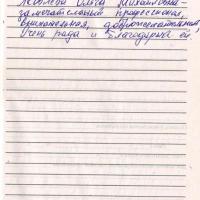 Яковлева Ольга Михайловна-
замечательный профессионал,
внимательная, доброжелательная
Очень рада и благодарна ей